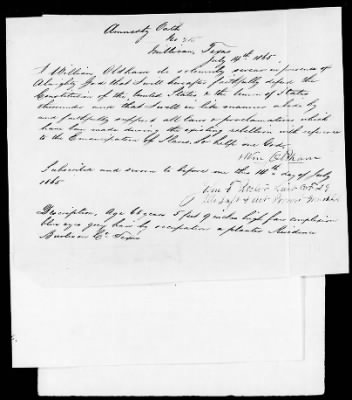 Amnesty Oath
No
Millican, Texas
July 14th 1865
I William Oldham do solemnly swear in presence of
Almighty God that I will hereafter faithfully defend the
Constitution of the United States & the Union of States
thereunder and that I will in like manner abide by
and faithfully support all laws & proclamations which
have been made during the existing rebellion with reference
to the Emancipation of Slaves, So help me God.
Wm Oldham
Subscribed and sworn to before me this 14th day of July
1865
Description, Age years 5 feet inches high fair complexion
blue eyes grey hair by occupation a planter Residence
Burleson Co Texas